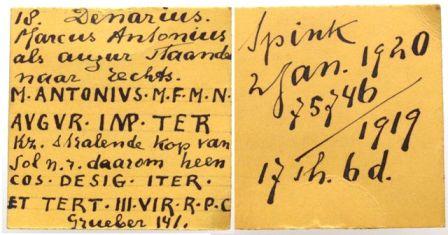 18. Denarius.
Marcus Antonius
als augur staande
naar rechts.
M. ANTONIVS. M. F. M. N.
AVGVR. IMP. TER
Kz. stralende kop van
Sol n. r. daarom heen
COS. DESIG. ITER.
ET TERT. III. VIR. R. P. C
Grueber 141.
Spink
2 Jan. 1920
75746
1919
17 sh. 6 d.